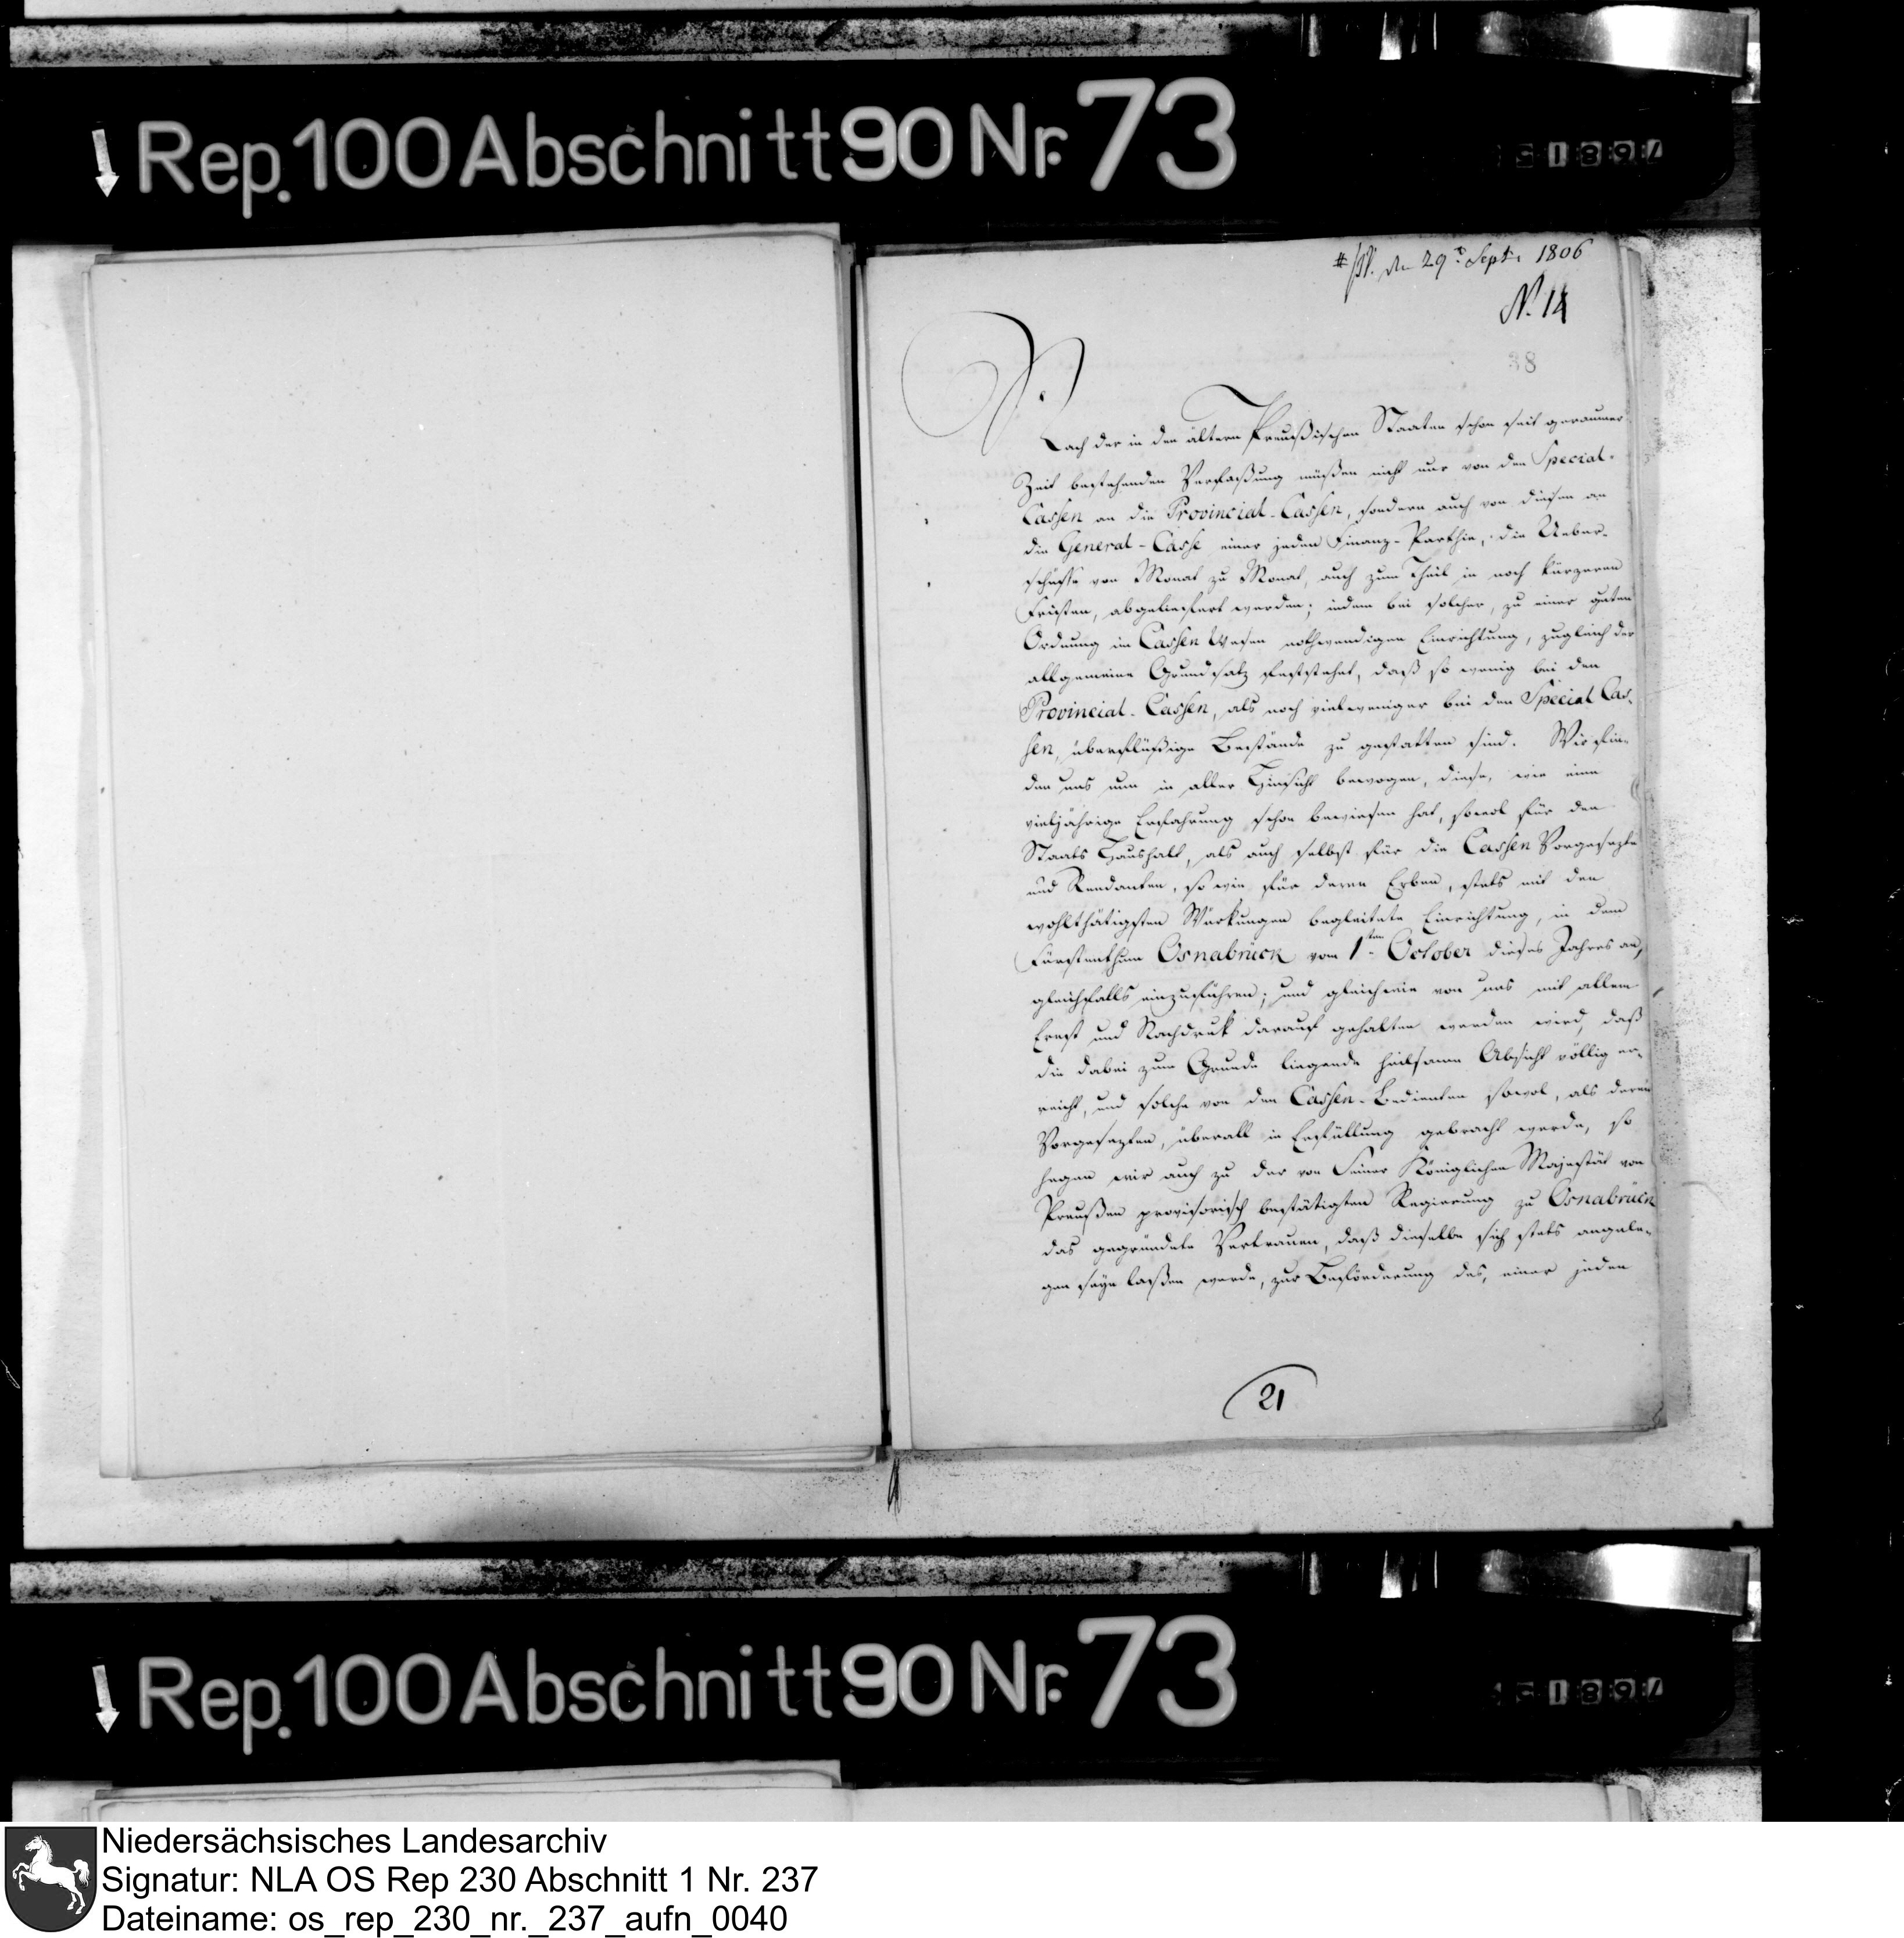 Rep. 100 Abschnitt 90 Nr. 73
den 29. Septr. 1806
N. 14
38
Nach der in den ältern Preußischen Staaten schon seit geraumer
Zeit bestehenden Verfaßung müßen nicht nur von den Special-
Cassen an die Provincial-Cassen, sondern auch von diesen an
die General-Casse einer jeden Finanz-Parthie, die Ueber-
schüsse von Monat zu Monat, auch zum Theil in noch kürzeren
Fristen, abgeliefert werden; indem bei solcher, zu einer guten
Ordnung im Cassen Wesen nothwendigen Einrichtung, zugleich der
allgemeine Grundsatz feststehet, daß so wenig bei den
Provincial-Cassen, als noch vielweniger bei den Special Cas-
sen, überflüßige Bestände zu gestatten sind. Wir fin-
den uns nun in aller Hinsicht bewogen, diese, wie eine
vieljährige Erfahrung schon bewiesen hat, sowol für den
Staats Haushalt, als auch selbst für die Cassen Vorgesezte
und Rendanten, so wie für deren Erben, stets mit den
wohlthätigsten Würkungen begleitete Einrichtung, in dem
Fürstenthum Osnabrück vom 1sten October dieses Jahres an,
gleichfalls einzuführen; und gleichwie von uns mit allem
Ernst und Nachdruk darauf gehalten werden wird, daß
die dabei zum Grunde liegende heilsame Absicht völlig er-
reicht, und solche von den Cassen-Bedienten sowol, als deren
Vorgesezten, überall in Erfüllung gebracht werde, so
hegen wir auch zu der von Seiner Königlichen Majestät von
Preußen provisorisch bestätigten Regierung zu Osnabrück
das gegründete Vertrauen, daß dieselbe sich stets angele-
gen seyn laßen werde, zur Beförderung des, einer jeden
21
Rep. 100 Abschnitt 90 Nr. 73
Niedersächsisches Landesarchiv
Signatur: NLA OS Rep 230 Abschnitt 1 Nr. 237
Dateiname: os_rep_230_nr._237_aufn_0040